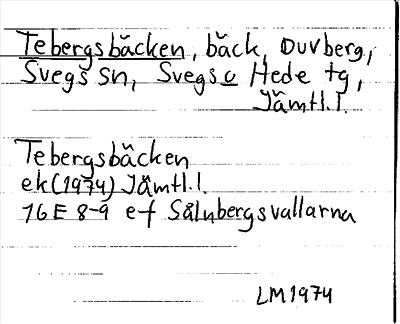 Tebergsbäcken, bäck, Duvberg,
Svegs sn, Svegs o Hede tg,
Jämtl.l.
Tebergsbäcken
ek (1974) Jämtl.l.
16E 8-9 e-f Sålnbergsvallarna
LM1974